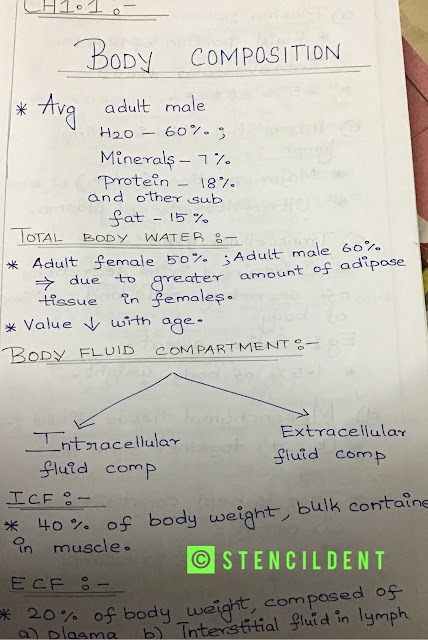 CH 1.1 :-
BODY COMPOSITION
* Avg adult male
H2O - 60% ;
Minerals - 7%
Protein - 18%
and other sub
fat - 15%
TOTAL BODY WATER :-
* Adult female 50% ; Adult male 60%
⇒ due to greater amount of adipase
tissue in females.
* Value ↓ with age.
BODY FLUID COMPARTMENT :-
Intracellular
fluid comp
Extracellular
fluid comp
ICF :-
* 40% of body weight, bulk containe
in muscle.
© STENCILDENT
ECF :-
* 20% of body weight, composed of
a) plasma b) Interstitial fluid in lymph